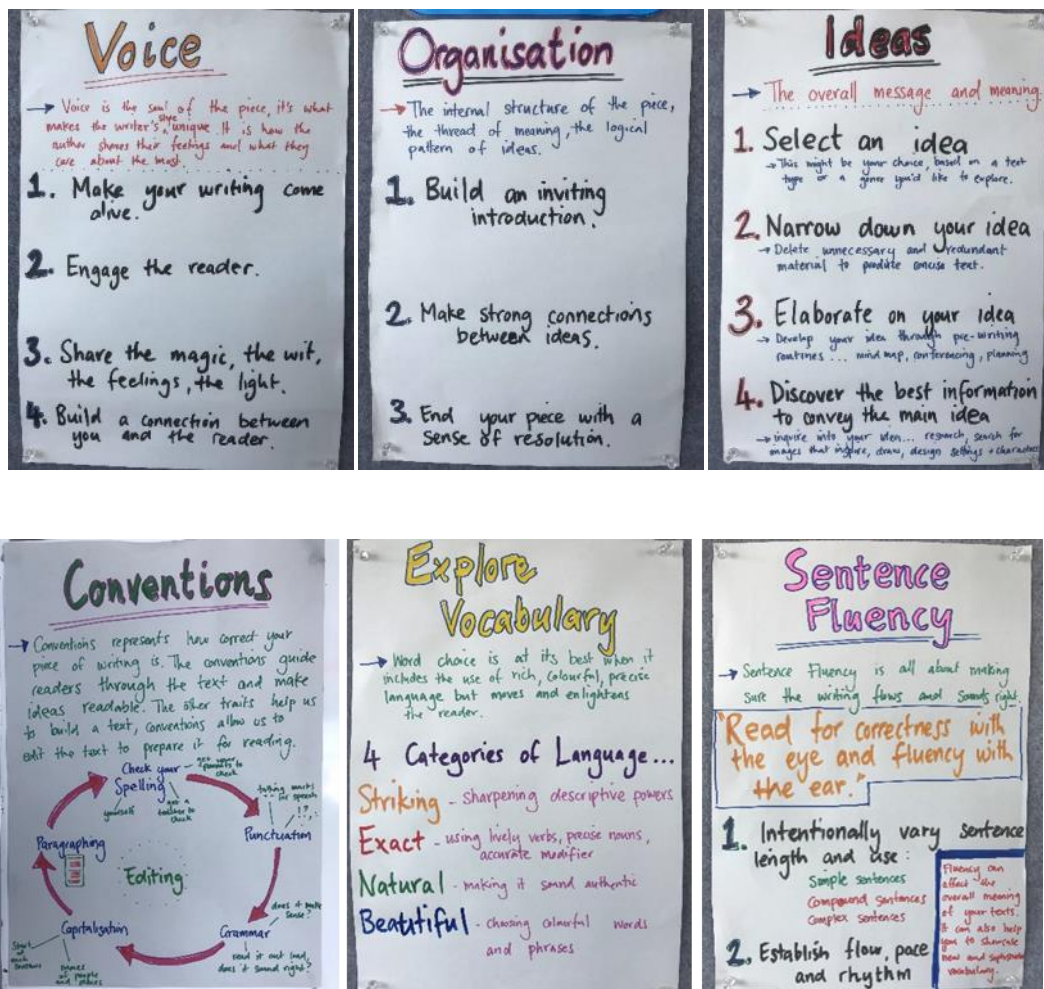 Voice
→ Voice is the soul of the piece, it's what
makes the writer's style unique. It is how the
author shares their feelings and what they
care about the most.
1. Make your writing come
alive.
2. Engage the reader.
3. Share the magic, the wit,
the feelings, the light.
4. Build a connection between
you and the reader.
Organisation
→ The internal structure of the piece,
the thread of meaning, the logical
pattern of ideas.
1. Build an inviting
introduction.
2. Make strong connections
between ideas.
3. End your piece with a
sense of resolution.
Ideas
→ The overall message and meaning.
1. Select an idea
→ This might be your choice, based on a text
type or a genre you'd like to explore.
2. Narrow down your idea
→ Delete unnecessary and redundant
material to produce concise text.
3. Elaborate on your idea
→ Develop your idea through pre-writing
routines... mind map, conferencing, planning
4. Discover the best information
to convey the main idea
→ inquire into your idea... research, search for
images that inspire, draw, design settings + character
Conventions
→ Conventions represents how correct your
piece of writing is. The conventions guide
readers through the text and make
ideas readable. The other traits help us
to build a text, conventions allow us to
edit the text to prepare it for reading.
Check your
Spelling
get your
parents to
check
yourself
get a
teacher to
check
Punctuation
talking marks
for speech
! ? , .
Grammar
does it make
sense?
read it out loud,
does it sound right?
Capitalisation
Start of
each
sentence
names
of people
and places
Paragraphing
Editing
Explore
Vocabulary
→ Word choice is at its best when it
includes the use of rich, colourful, precise
language but moves and enlightens
the reader.
4 Categories of Language...
Striking - sharpening descriptive powers
Exact - using lively verbs, precise nouns,
accurate modifier
Natural - making it sound authentic
Beautiful - choosing colourful words
and phrases
Sentence
Fluency
→ Sentence Fluency is all about making
sure the writing flows and sounds right.
"Read for correctness with
the eye and fluency with
the ear."
1. Intentionally vary sentence
length and use:
Simple sentences
Compound sentences
Complex sentences
2. Establish flow, pace
and rhythm
Fluency can
affect the
overall meaning
of your texts.
it can also help
you to showcase
new and
vocabulary.